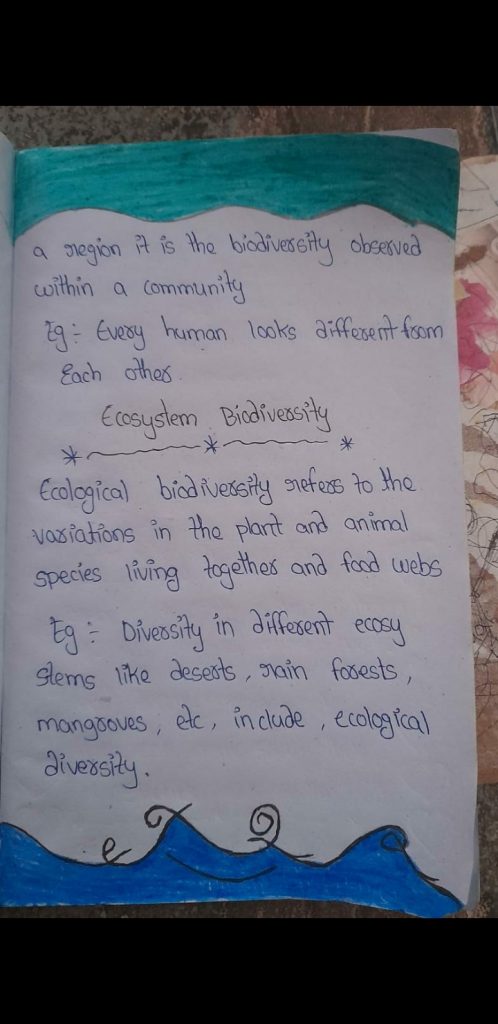 a region it is the biodiversity observed
within a community
Eg:- Every human looks different from
Each other.
Ecosystem Biodiversity
Ecological biodiversity refers to the
variations in the plant and animal
species living together and food webs
Eg:- Diversity in different ecosy
stems like deserts, rain forests,
mangroves, etc, include, ecological
diversity.